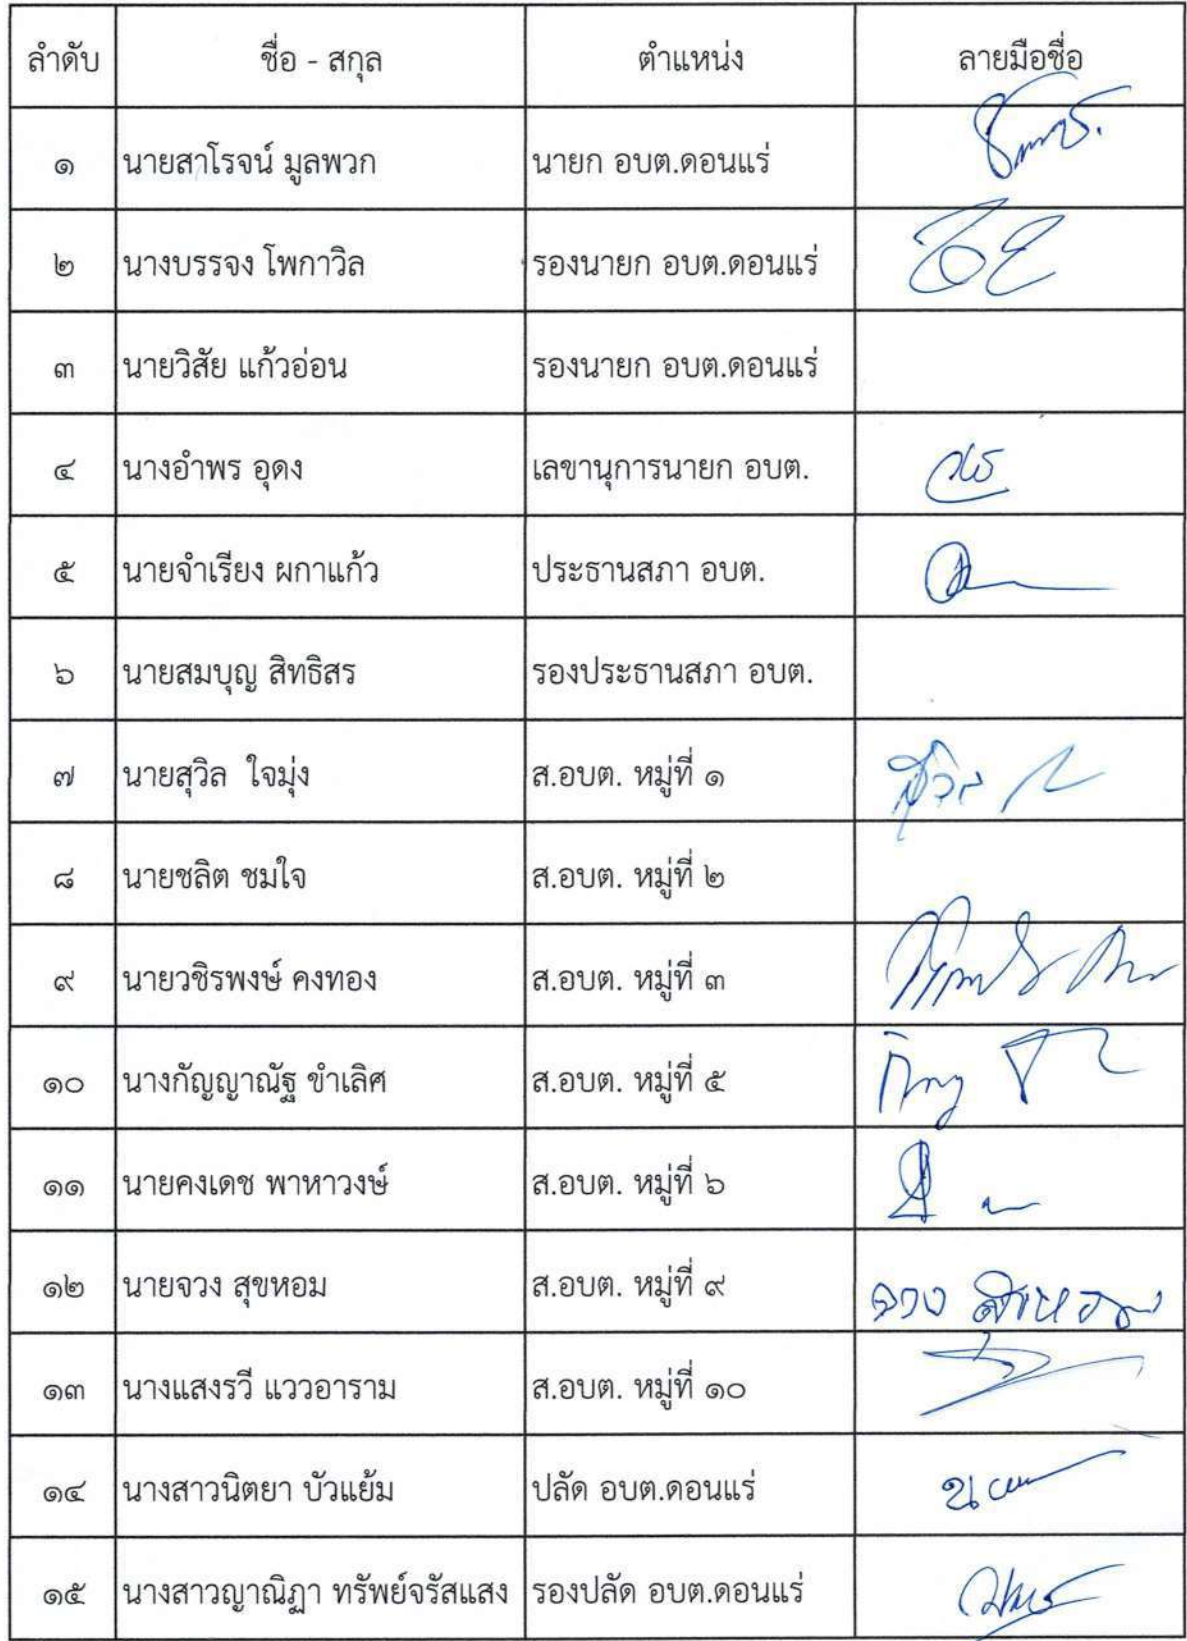 ลำดับ ชื่อ - สกุล ตำแหน่ง ลายมือชื่อ
๑ นายสาโรจน์ มูลพวก นายก อบต.ดอนแร่
๒ นางบรรจง โพกาวิล รองนายก อบต.ดอนแร่
๓ นายวิสัย แก้วอ่อน รองนายก อบต.ดอนแร่
๔ นางอำพร อุดง เลขานุการนายก อบต.
๕ นายจำเรียง ผกาแก้ว ประธานสภา อบต.
๖ นายสมบุญ สิทธิสร รองประธานสภา อบต.
๗ นายสุวิล ใจมุ่ง ส.อบต. หมู่ที่ ๑
๘ นายชลิต ชมใจ ส.อบต. หมู่ที่ ๒
๙ นายวชิรพงษ์ คงทอง ส.อบต. หมู่ที่ ๓
๑๐ นางกัญญาณัฐ ขำเลิศ ส.อบต. หมู่ที่ ๕
๑๑ นายคงเดช พาหาวงษ์ ส.อบต. หมู่ที่ ๖
๑๒ นายจวง สุขหอม ส.อบต. หมู่ที่ ๙ จวง สุขหอม
๑๓ นางแสงรวี แววอาราม ส.อบต. หมู่ที่ ๑๐
๑๔ นางสาวนิตยา บัวแย้ม ปลัด อบต.ดอนแร่
๑๕ นางสาวญาณิฏา ทรัพย์จรัสแสง รองปลัด อบต.ดอนแร่